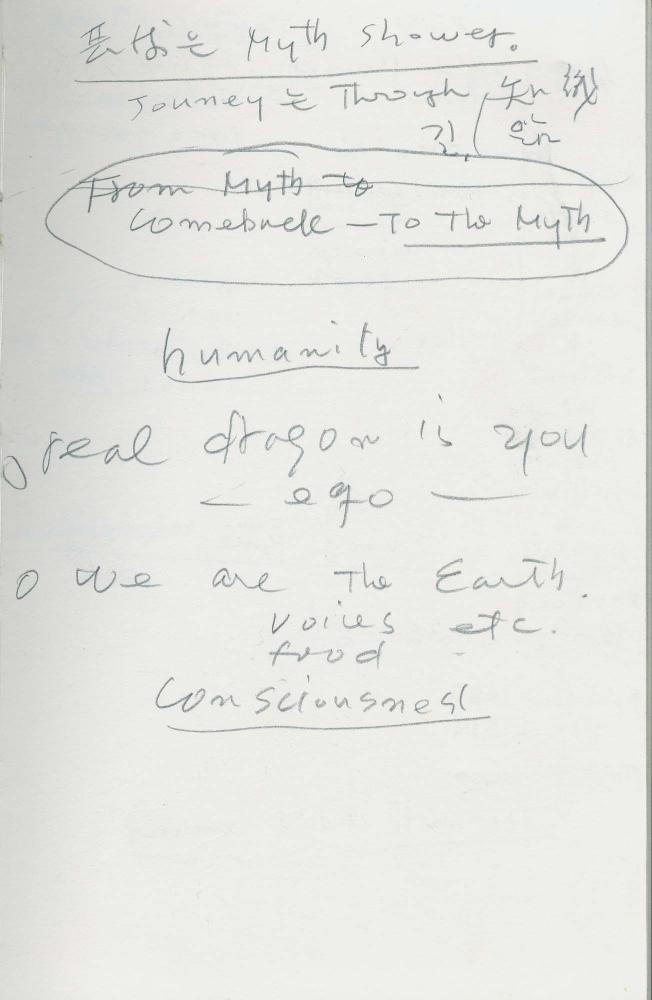 은 Myth shower.
Journey는 Through
길,
From Myth to
Comeback – To The Myth
humanity
real dragon is you
– ego –
we are The Earth.
voices etc.
food
Consciousness